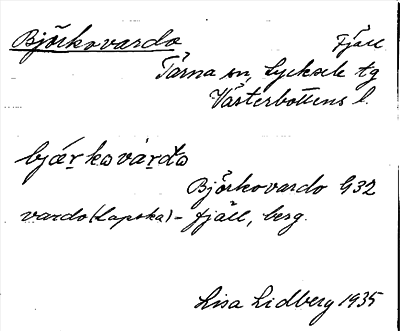 Björkovardo Fjäll
Tärna sn, Lycksele tg
Västerbottens l.
bjær̥kovar̥do
Björkovardo G32
vardo (Lapska) - fjäll, berg.
Lisa Lidberg 1935